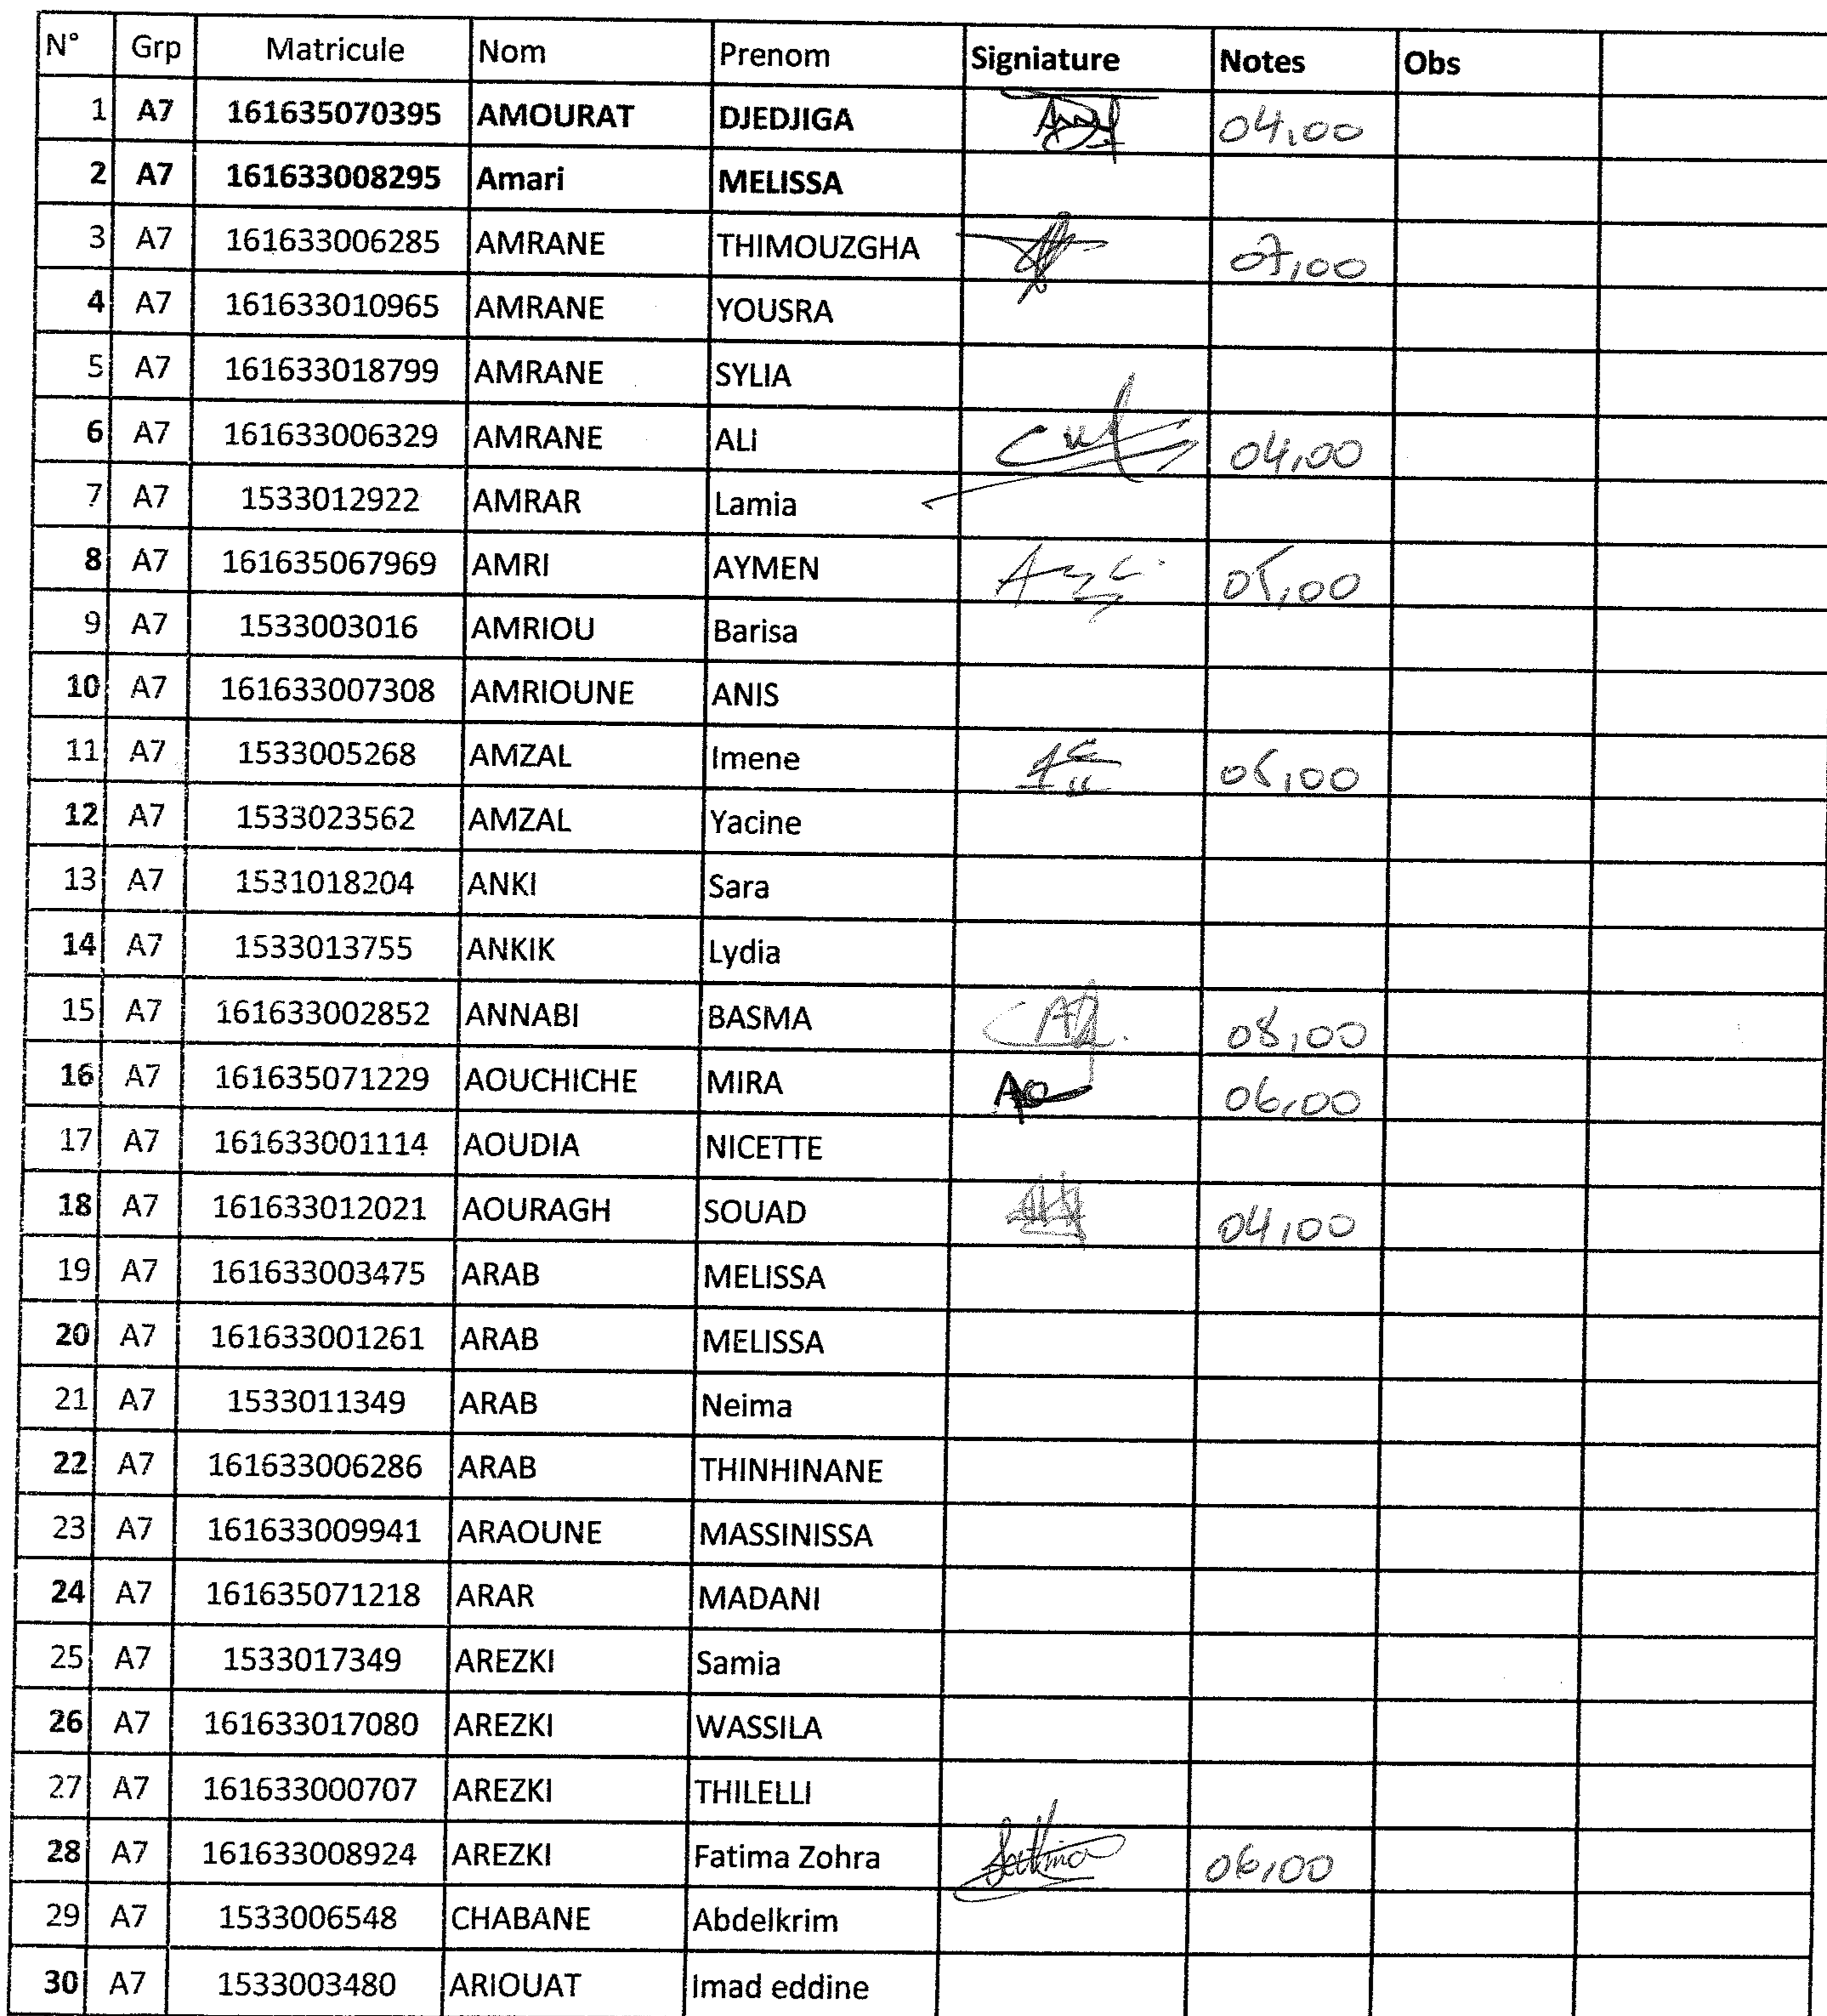 N° Grp Matricule Nom Prenom Signiature Notes Obs
1 A7 161635070395 AMOURAT DJEDJIGA 04,00
2 A7 161633008295 Amari MELISSA
3 A7 161633006285 AMRANE THIMOUZGHA 07,00
4 A7 161633010965 AMRANE YOUSRA
5 A7 161633018799 AMRANE SYLIA
6 A7 161633006329 AMRANE ALI 04,00
7 A7 1533012922 AMRAR Lamia
8 A7 161635067969 AMRI AYMEN 05,00
9 A7 1533003016 AMRIOU Barisa
10 A7 161633007308 AMRIOUNE ANIS
11 A7 1533005268 AMZAL Imene 05,00
12 A7 1533023562 AMZAL Yacine
13 A7 1531018204 ANKI Sara
14 A7 1533013755 ANKIK Lydia
15 A7 161633002852 ANNABI BASMA 08,00
16 A7 161635071229 AOUCHICHE MIRA 06,00
17 A7 161633001114 AOUDIA NICETTE
18 A7 161633012021 AOURAGH SOUAD 04,00
19 A7 161633003475 ARAB MELISSA
20 A7 161633001261 ARAB MELISSA
21 A7 1533011349 ARAB Neima
22 A7 161633006286 ARAB THINHINANE
23 A7 161633009941 ARAOUNE MASSINISSA
24 A7 161635071218 ARAR MADANI
25 A7 1533017349 AREZKI Samia
26 A7 161633017080 AREZKI WASSILA
27 A7 161633000707 AREZKI THILELLI
28 A7 161633008924 AREZKI Fatima Zohra 06,00
29 A7 1533006548 CHABANE Abdelkrim
30 A7 1533003480 ARIOUAT Imad eddine